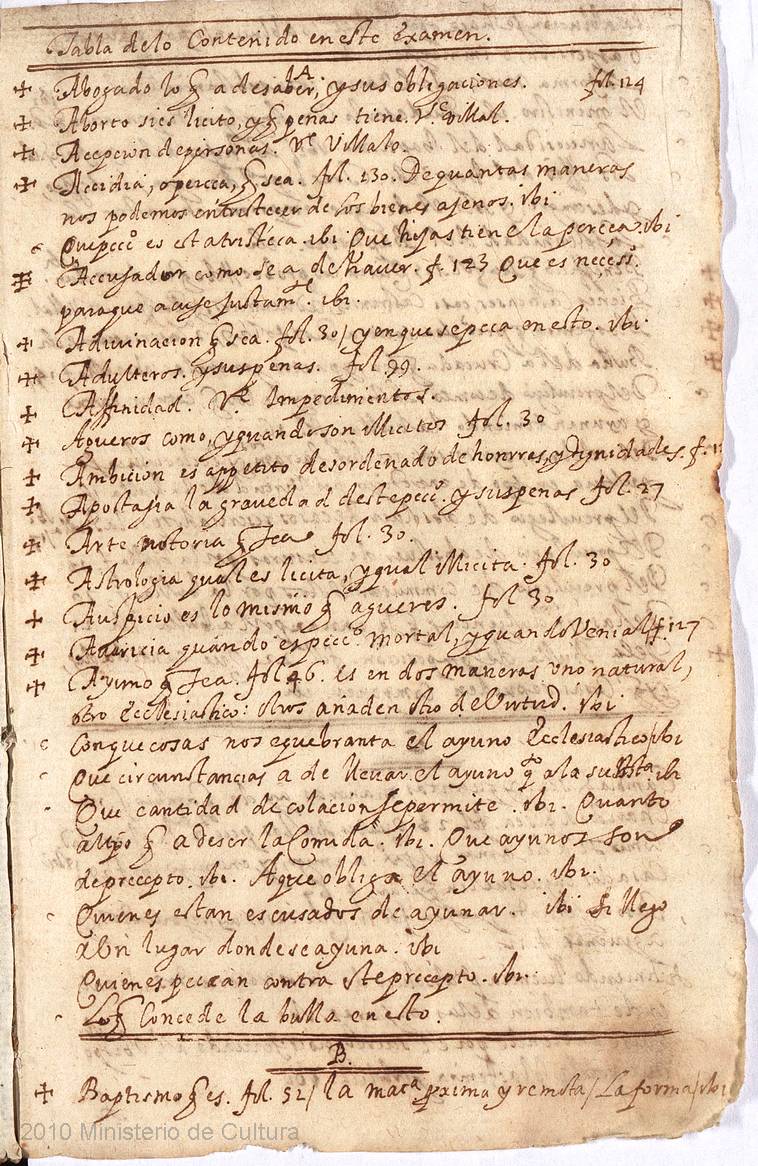 Tabla delo Contenido eneste Examen.
A
✠ Abogado lo q̃ a desaber, ysus obligaciones. fol. 124
✠ Aborto sies licito, yq̃ penas tiene. Vᵉ Villal.
✠ Acepcion depersonas. Vᵉ Villalo.
✠ Accidia, o pereca, q̃ sea. fol. 130. Dequantas maneras
nos podemos entristecer de los bienes ajenos. ibi
Quepecᵒ es esta tristeca. ibi Que hijas tiene la pereca. ibi
✠ Accusador como se a de haver. f. 123 Que es necessᵒ.
paraque acuse justamᵗᵉ. ibi.
✠ Adivinacion q̃ sea. fol. 30/ yenque sepeca en esto. ibi.
✠ Adulteros. ysuspenas. fol 99.
✠ Affinidad. Vᵉ Impedimentos.
✠ Agueros como, yquando son illicitos fol. 30
✠ Ambicion es appetito desordenado de honrras, y Dignidades. f.
✠ Apostasia la gravedad destepeccᵒ. ysuspenas fol. 27
✠ Arte notoria q̃ sea fol. 30.
✠ Astrologia qual es licita, yqual illicita. fol. 30
✠ Auspicio es lo mismo q̃ agueros. fol 30
✠ Avaricia quando es peccᵒ. mortal, yquando Venial f. 127
✠ Ayuno q̃ sea. fol 46. es en dos maneras uno natural,
otro Ecclesiastico: otros añaden otro de Virtud. ibi
Conque cosas nos equebranta el ayuno Ecclesiastico/ibi
Que circunstancias a de llevar el ayuno qᵗᵒ a la subsᵗᵃ ibi
Que cantidad de colacion sepermite. ibi. Quanto
altpõ q̃ a deser la Comida. ibi. Que ayunos son
deprecepto. ibi. Aque obliga el ayuno. ibi.
Quienes estan escusados de ayunar. ibi Si llego
a Un lugar donde se ayuna. ibi
Quienes peccan contra este precepto. ibi.
Loq̃ Concede la bulla en esto.
B.
✠ Baptismo q̃ es. fol. 52/ la matᵃ proxima y remota/ La forma/ibi
2010 Ministerio de Cultura